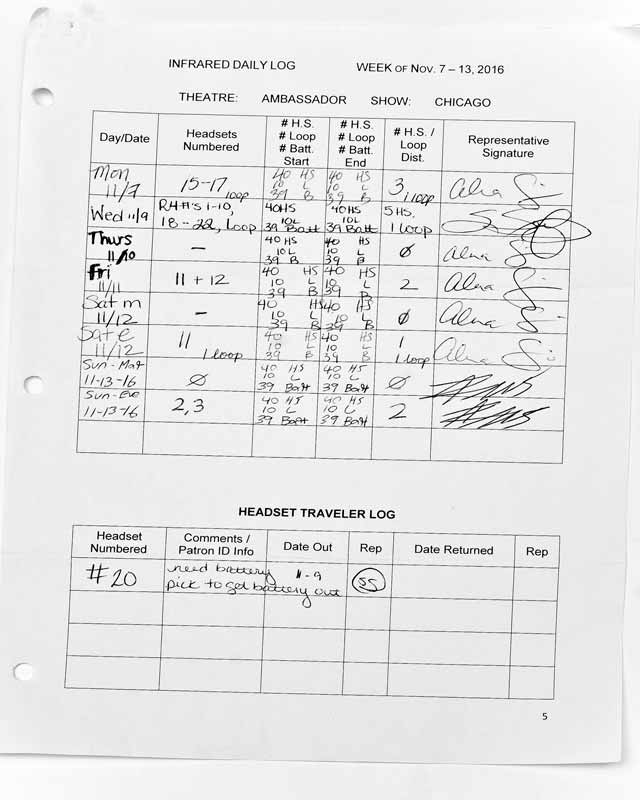 INFRARED DAILY LOG WEEK OF NOV. 7 – 13, 2016
THEATRE: AMBASSADOR SHOW: CHICAGO
Day/Date Headsets Numbered # H.S. # Loop # Batt. Start # H.S. # Loop # Batt. End # H.S. / Loop Dist. Representative Signature
Mon 11/7 15-17, loop 40 HS 10 L 39 B 40 HS 10 L 39 B 3, 1 loop
Wed 11/9 18-22, loop 40HS 10L 39 Batt 40HS 10L 39 Batt 5 HS. 1 loop
Thurs 11/10 – 40 HS 10 L 39 B 40 HS 10 L 39 B ø
Fri 11/11 11 + 12 40 HS 10 L 39 B 40 HS 10 L 39 B 2
Sat m 11/12 – 40 HS 10 L 39 B 40 HS 10 L 39 B ø
Sat e 11/12 11 1 loop 40 HS 10 L 39 B 40 HS 10 L 39 B 1 1 loop
Sun-Mat 11-13-16 ø 40 HS 10 L 39 Batt 40 HS 10 L 39 Batt ø
Sun-Eve 11-13-16 2,3 40 HS 10 L 39 Batt 40 HS 10 L 39 Batt 2
HEADSET TRAVELER LOG
Headset Numbered Comments / Patron ID Info Date Out Rep Date Returned Rep
#20 need battery pick to get battery out 11-9 SS
5